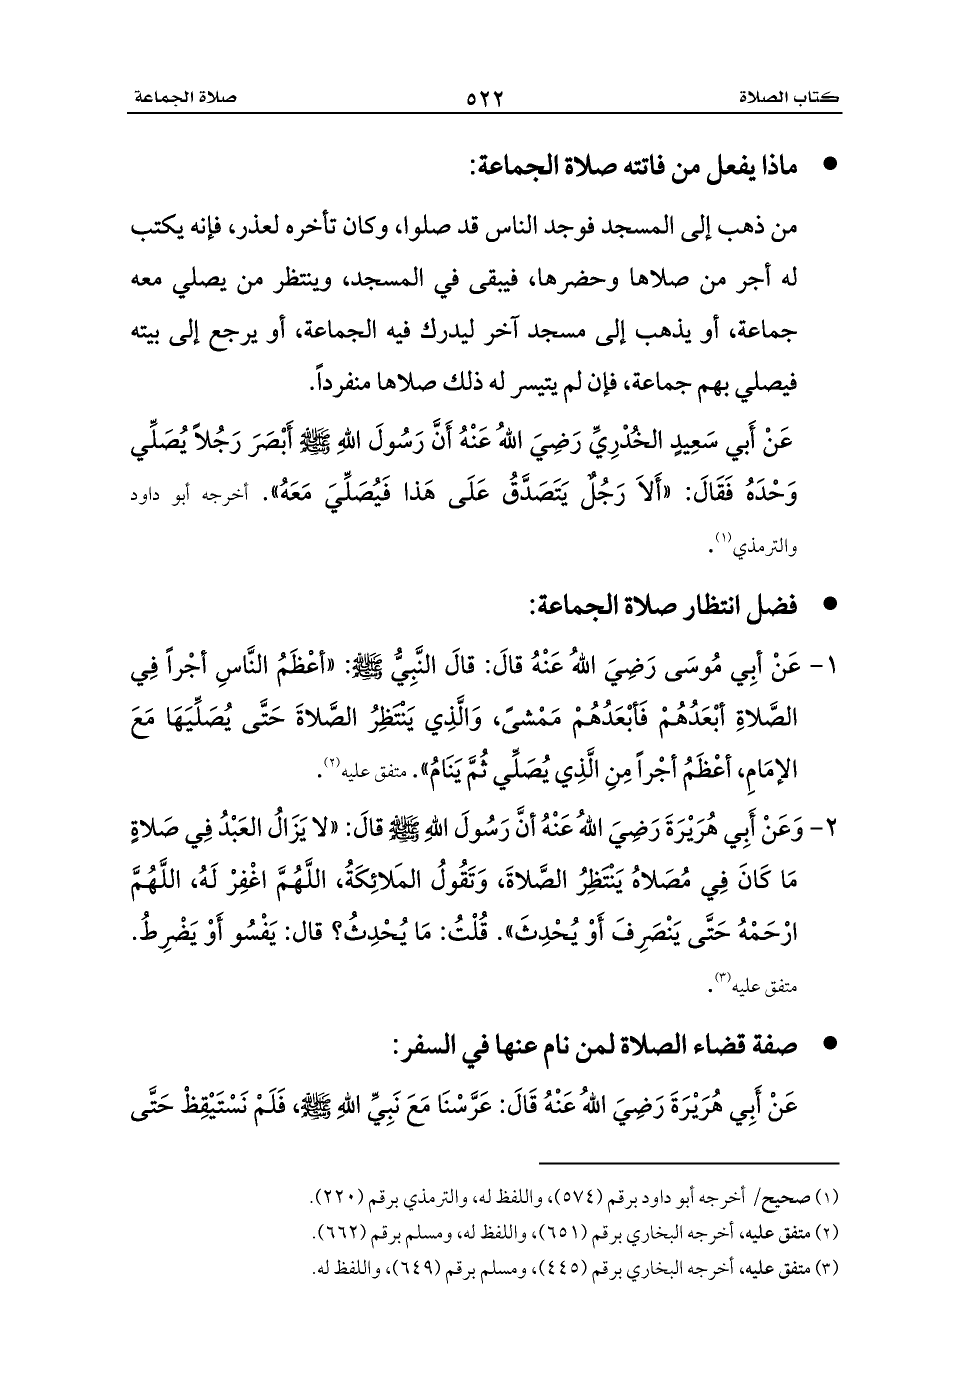 كتاب الصلاة ٥٢٢ صلاة الجماعة
● ماذا يفعل من فاتته صلاة الجماعة:
من ذهب إلى المسجد فوجد الناس قد صلوا، وكان تأخره لعذر، فإنه يكتب
له أجر من صلاها وحضرها، فيبقى في المسجد، وينتظر من يصلي معه
جماعة، أو يذهب إلى مسجد آخر ليدرك فيه الجماعة، أو يرجع إلى بيته
فيصلي بهم جماعة، فإن لم يتيسر له ذلك صلاها منفرداً.
عَنْ أَبي سَعِيدٍ الخُدْرِيِّ رَضِيَ اللهُ عَنْهُ أَنَّ رَسُولَ اللهِ ﷺ أَبْصَرَ رَجُلاً يُصَلِّي
وَحْدَهُ فَقَالَ: «أَلاَ رَجُلٌ يَتَصَدَّقُ عَلَى هَذا فَيُصَلِّيَ مَعَهُ». أخرجه أبو داود
والترمذي(١).
● فضل انتظار صلاة الجماعة:
١- عَنْ أبِي مُوسَى رَضِيَ اللهُ عَنْهُ قالَ: قالَ النَّبِيُّ ﷺ: «أعْظَمُ النَّاسِ أجْراً فِي
الصَّلاةِ أبْعَدُهُمْ فَأبْعَدُهُمْ مَمْشىً، وَالَّذِي يَنْتَظِرُ الصَّلاةَ حَتَّى يُصَلِّيَهَا مَعَ
الإمَامِ، أعْظَمُ أجْراً مِنِ الَّذِي يُصَلِّي ثُمَّ يَنَامُ». متفق عليه(٢).
٢- وَعَنْ أَبِي هُرَيْرَةَ رَضِيَ اللهُ عَنْهُ أنَّ رَسُولَ اللهِ ﷺ قالَ: «لا يَزَالُ العَبْدُ فِي صَلاةٍ
مَا كَانَ فِي مُصَلاهُ يَنْتَظِرُ الصَّلاةَ، وَتَقُولُ المَلائِكَةُ، اللَّهُمَّ اغْفِرْ لَهُ، اللَّهُمَّ
ارْحَمْهُ حَتَّى يَنْصَرِفَ أَوْ يُحْدِثَ». قُلْتُ: مَا يُحْدِثُ؟ قال: يَفْسُو أَوْ يَضْرِطُ.
متفق عليه(٣).
● صفة قضاء الصلاة لمن نام عنها في السفر:
عَنْ أَبِي هُرَيْرَةَ رَضِيَ اللهُ عَنْهُ قَالَ: عَرَّسْنَا مَعَ نَبِيِّ اللهِ ﷺ، فَلَمْ نَسْتَيْقِظْ حَتَّى
(١) صحيح/ أخرجه أبو داود برقم (٥٧٤)، واللفظ له، والترمذي برقم (٢٢٠).
(٢) متفق عليه، أخرجه البخاري برقم (٦٥١)، واللفظ له، ومسلم برقم (٦٦٢).
(٣) متفق عليه، أخرجه البخاري برقم (٤٤٥)، ومسلم برقم (٦٤٩)، واللفظ له.